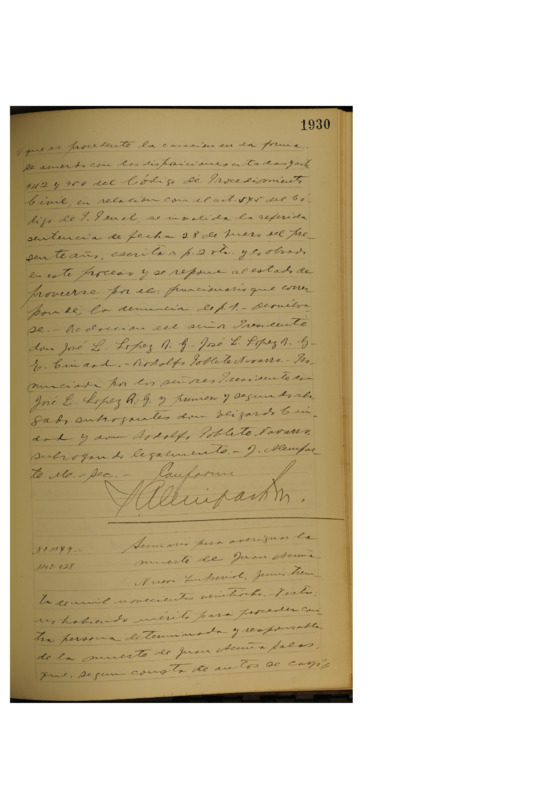 1930
que es procedente la casacion en la forma.
De acuerdo con las disposiciones citadas y art
942 y 960 del Código de Procedimiento
Civil, en relacion con el art. 545 del Có-
digo de P. Penal se invalida la referida
sentencia de fecha 28 de Enero del pre-
sente año, escrita a f. 2 vta. y lo obrado
en este proceso y se repone al estado de
proveerse por el funcionario que corres
ponde, la denuncia de f. 1.- Devuélva-
se.- Redaccion del señor Presidente
don José L. Lopez R. G. José L. Lopez R. G.
E. Ciudad.- Rodolfo Poblete Navarro.- Pro
nunciada por los señores Presidente don
José L. Lopez R. G. y primero y segundo abo
gado subrogantes don Eligardo Ciu-
dad y don Rodolfo Poblete Navarro,
subrogando legalmente.- J. Almpar-
te M.- Sec.- Conforme
Nº 1149
Sumario para averiguar la
muerte de Juan Acuña
Nueva Imperial, Junio trein-
ta de mil novecientos veintiocho. Vistos:
no habiendo mérito para proceder con-
tra persona determinada y responsable
de la muerte de Juan Acuña Salas,
que, segun consta de autos se cayó